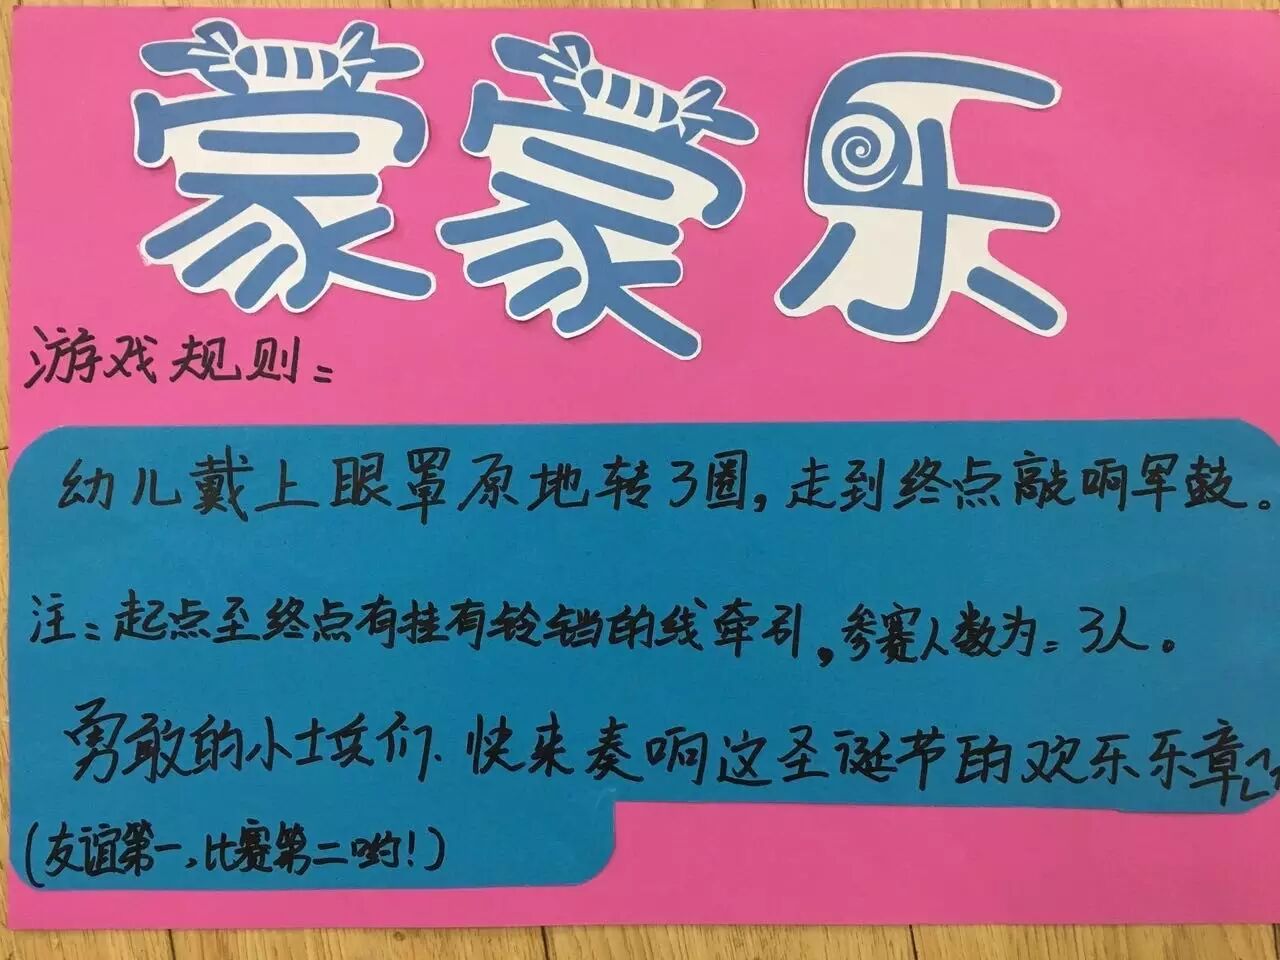 蒙蒙乐
游戏规则：
幼儿戴上眼罩原地转3圈，走到终点敲响军鼓。
注：起点至终点有挂有铃铛的线牵引，参赛人数为：3人。
勇敢的小士兵们.快来奏响这圣诞节的欢乐乐章吧
(友谊第一，比赛第二哟！)